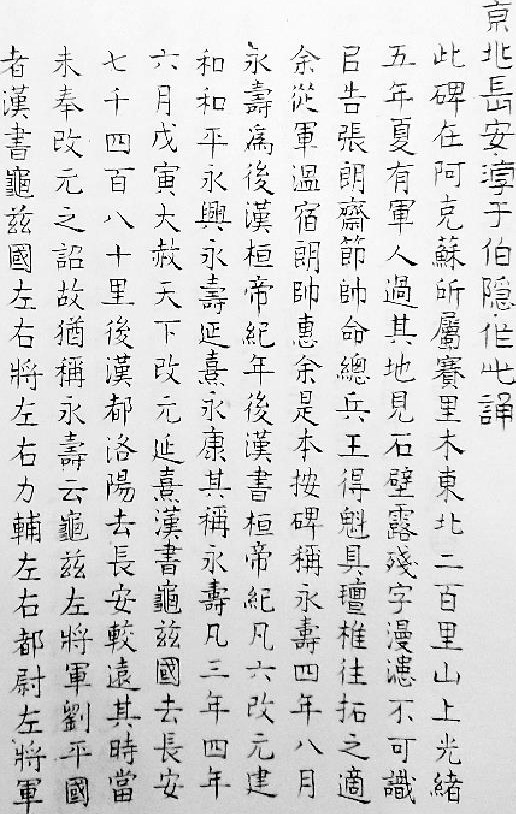 京兆長安淳于伯隗作此誦
此碑在阿克蘇所屬賽里木東北二百里山上光緒
五年夏有軍人過其地見石壁露殘字漫漶不可識
以告張朗齋節帥命總兵王得魁具氊椎往拓之適
余從軍溫宿朗帥惠余是本按碑稱永壽四年八月
永壽為後漢桓帝紀年後漢書桓帝紀凡六改元建
和和平永興永壽延熹永康其稱永壽凡三年四年
六月戊寅大赦天下改元延熹漢書龜兹國去長安
七千四百八十里後漢都洛陽去長安較遠其時當
未奉改元之詔故猶稱永壽云龜兹左將軍劉平國
者漢書龜兹國左右將左右力輔左右都尉左將軍